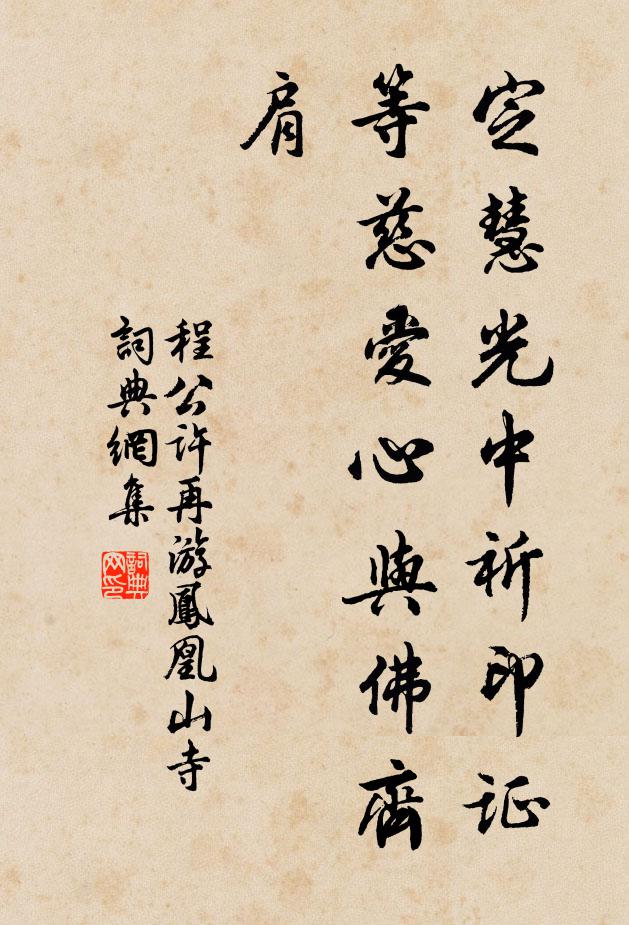 定慧光中祈印证
等慈愛心與佛齊
肩
程公许再游鳳凰山寺
詞典網集
詞典网印